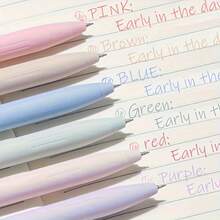 PINK:
Early in the day
Brown:
Early in the
BLUE:
Early in th
Green:
Early in
red:
Early in
Purple:
Early